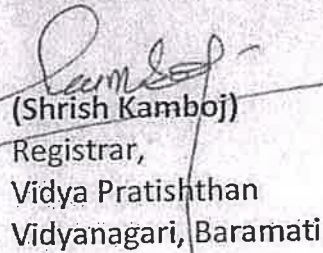 (Shrish Kamboj)
Registrar,
Vidya Pratishthan
Vidyanagari, Baramati